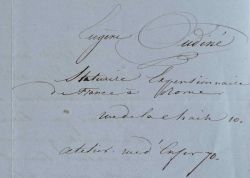 Eugène Oudiné
Statuaire Pensionnaire
de France à Rome
rue de la chaise 10.
atelier rue d'Enfer 70.